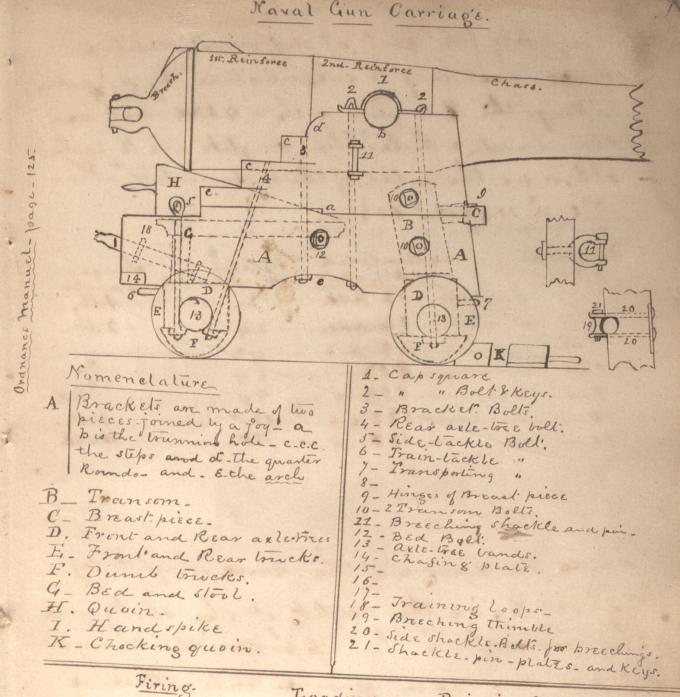 Naval Gun Carriage.
Breech.
1st. Reinforce
2nd. Reinforce
Chase.
1
2
2
b
d
c
3
11
c
4
H
e
5
a
10
9
C
B
18
G
A
12
10
A
14
D
e
D
6
7
E
13
E
13
F
F
O
K
11
21
20
19
20
Ordnance Manuel - page - 125
Nomenclature
A Brackets are made of two
pieces joined by a jog - a
b is the trunnion hole - c.c.c.
the steps and d- the quarter
Rounds- and - E the arch
B_ Transom_
C_ Breast piece_
D. Front and Rear axle-trees
E_ Front and Rear trucks.
F. Dumb trucks.
G_ Bed and stool.
H. Quoin_
I. Handspike
K_ Chocking quoin.
1_ Cap square
2_ " " Bolt & Keys.
3_ Bracket Bolts.
4_ Rear axle-tree bolt.
5_ Side-tackle Bolt.
6_ Train-tackle "
7_ Transporting "
8_
9_ Hinges of Breast piece
10_ 2 Transom Bolts.
11_ Breeching shackle and pin_
12_ Bed Bolt.
13_ Axle-tree bands.
14_ Chafing plate.
15_
16_
17_
18_ Training loops_
19_ Breeching thimble
20_ Side shackle-Bolts for breechings.
21_ Shackle-pin-plates-and Keys.
Firing.